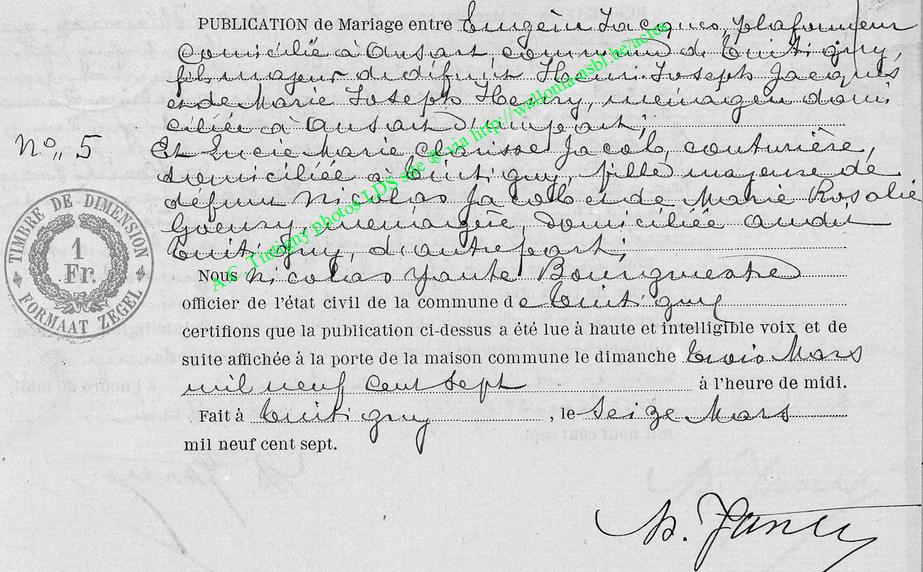 PUBLICATION de Mariage entre Eugène Jacques, plafonneur
domicilié à Ansart commune de Tintigny,
fils majeur de défunt Henri Joseph Jacques
et de Marie Joseph Henry, ménagère domi
ciliée à Ansart d'une part;
N° 5 Et Lucie Marie Clarisse Jacob, couturière,
domiciliée à Tintigny, fille majeure de
défunt Nicolas Jacob et de Marie Rosalie
ménagère, domiciliée audit
Tintigny, d'autre part;
Nous Nicolas Bourgmestre
officier de l'état civil de la commune de Tintigny
certifions que la publication ci-dessus a été lue à haute et intelligible voix et de
suite affichée à la porte de la maison commune le dimanche trois Mars
mil neuf cent sept à l'heure de midi.
Fait à Tintigny, le Seize Mars
mil neuf cent sept.
TIMBRE DE DIMENSION
1
Fr.
FORMAAT ZEGEL
A.C. Tintigny photos LDS site © via http://walloniaasbl.be/actes